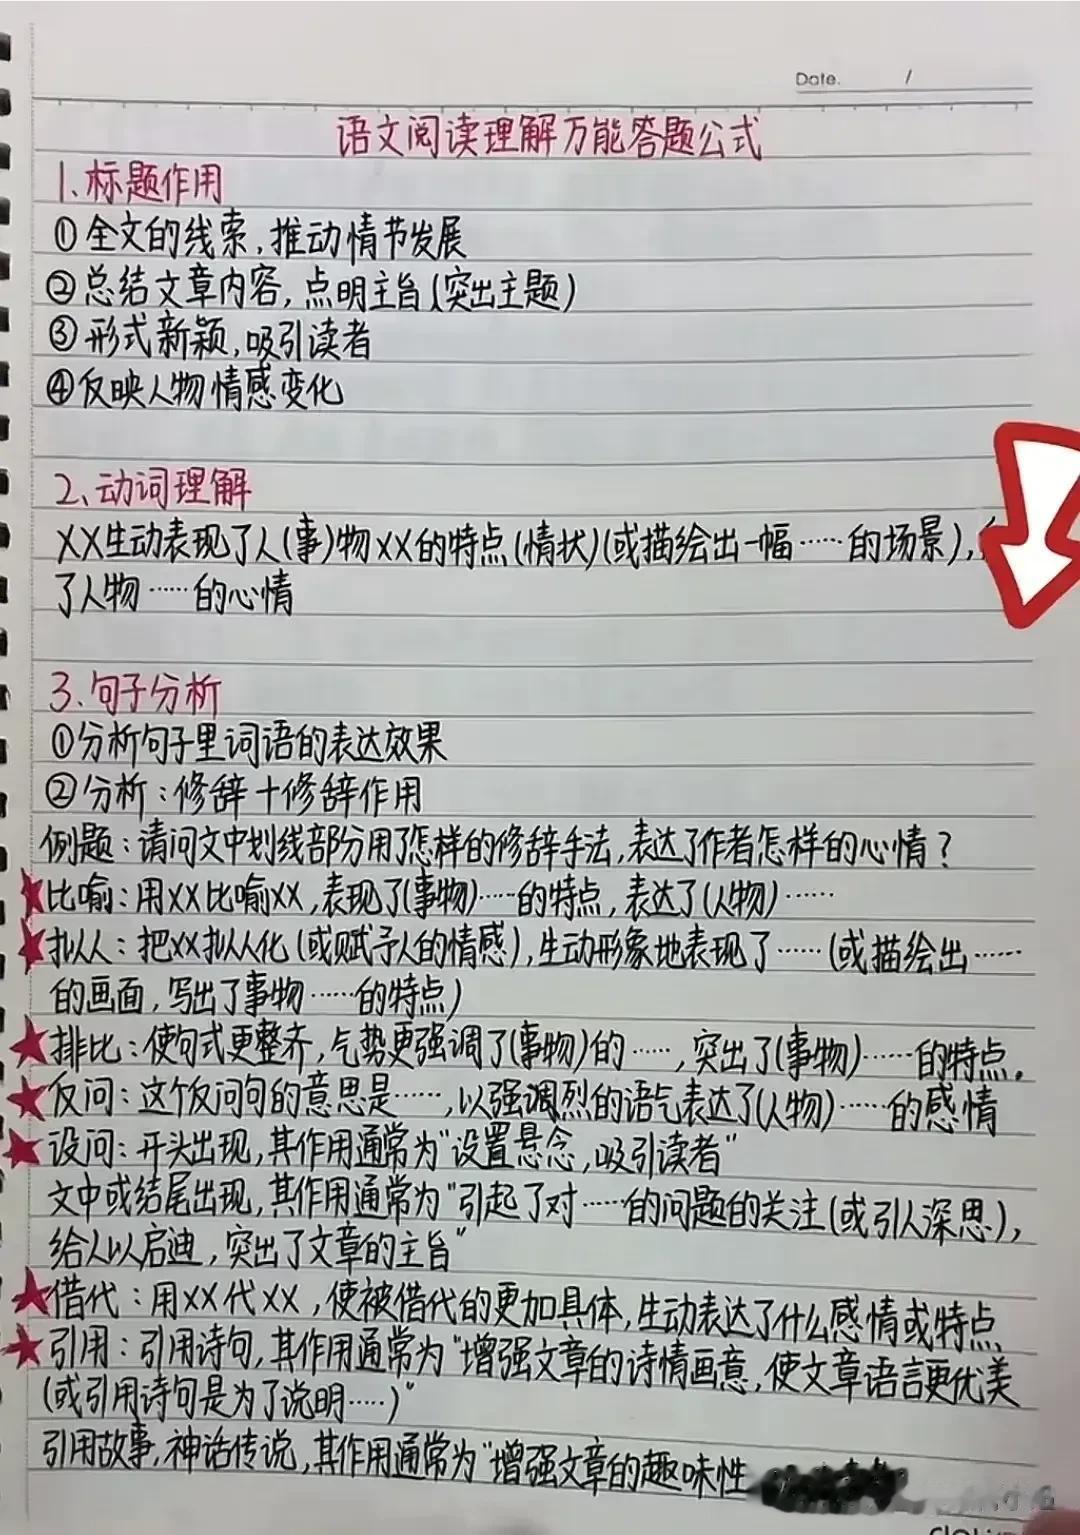 Date. /
语文阅读理解万能答题公式
1、标题作用
①全文的线索,推动情节发展
②总结文章内容,点明主旨(突出主题)
③形式新颖,吸引读者
④反映人物情感变化
2、动词理解
XX生动表现了人(事)物XX的特点(情状)(或描绘出一幅……的场景),
了人物……的心情
3.句子分析
①分析句子里词语的表达效果
②分析:修辞+修辞作用
例题:请问文中划线部分用了怎样的修辞手法,表达了作者怎样的心情?
★比喻:用XX比喻XX,表现了(事物)……的特点,表达了(人物)……
★拟人:把XX拟人化(或赋予人的情感),生动形象地表现了……(或描绘出……
的画面,写出了事物……的特点)
★排比:使句式更整齐,气势更强调了(事物)的……,突出了(事物)……的特点.
★反问:这个反问句的意思是……,以强调烈的语气表达了(人物)……的感情
★设问:开头出现,其作用通常为"设置悬念,吸引读者"
文中或结尾出现,其作用通常为"引起了对……的问题的关注(或引人深思),
给人以启迪,突出了文章的主旨"
★借代:用XX代XX,使被借代的更加具体,生动表达了什么感情或特点
★引用:引用诗句,其作用通常为"增强文章的诗情画意,使文章语言更优美
(或引用诗句是为了说明……)"
引用故事,神话传说,其作用通常为"增强文章的趣味性